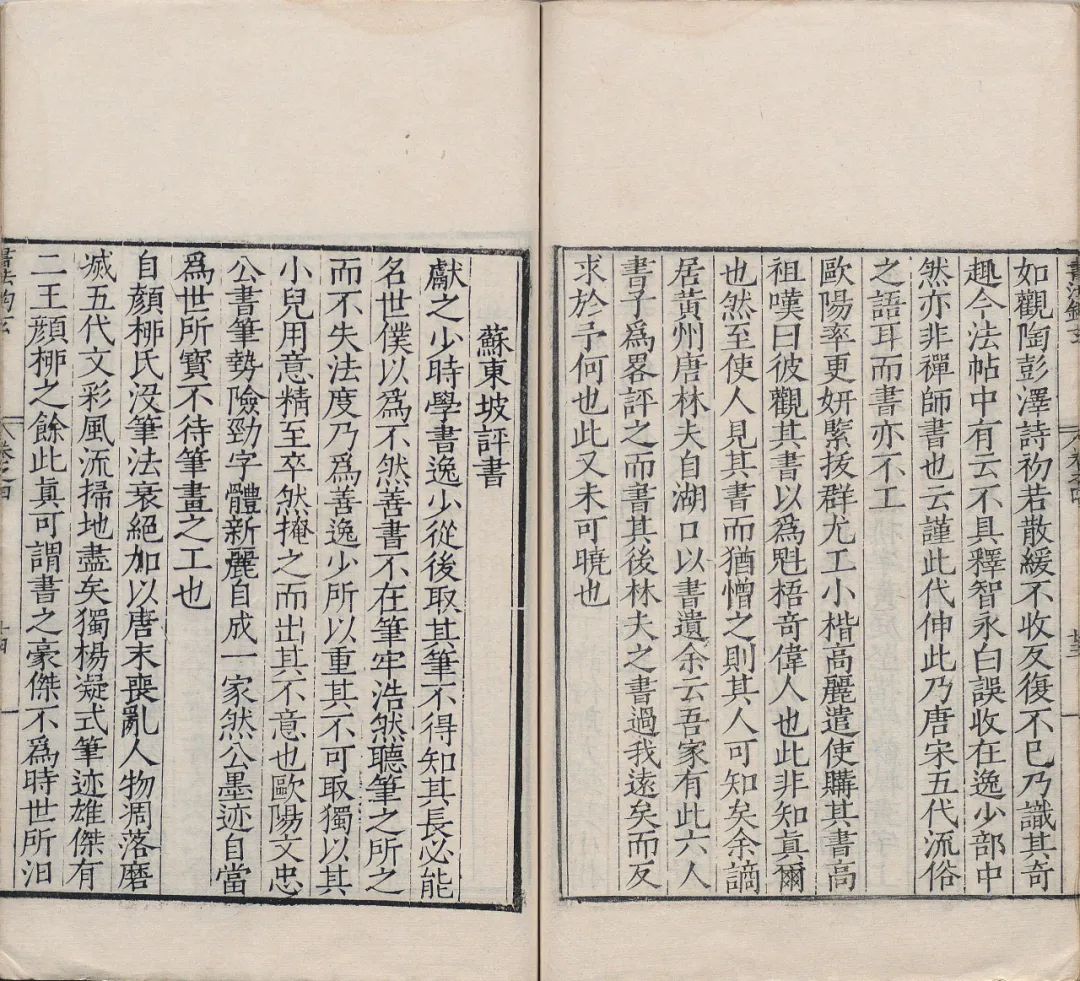 如觀陶彭澤詩初若散緩不收反復不已乃識其奇
趣今法帖中有云不具釋智永白誤收在逸少部中
然亦非禪師書也云謹此代伸此乃唐宋五代流俗
之語耳而書亦不工
歐陽率更妍緊拔群尤工小楷高麗遣使購其書高
祖嘆曰彼觀其書以爲魁梧奇偉人也此非知眞爾
也然至使人見其書而猶憎之則其人可知矣余謫
居黃州唐林夫自湖口以書遺余云吾家有此六人
書子爲畧評之而書其後林夫之書過我遠矣而反
求於予何也此又未可曉也
蘇東坡評書
獻之少時學書逸少從後取其筆不得知其長必能
名世僕以爲不然善書不在筆牢浩然聽筆之所之
而不失法度乃爲善逸少所以重其不可取獨以其
小兒用意精至卒然掩之而出其不意也歐陽文忠
公書筆勢險勁字體新麗自成一家然公墨迹自當
爲世所寳不待筆畫之工也
自顔栁氏没筆法衰絕加以唐末喪亂人物凋落磨
滅五代文彩風流掃地盡矣獨楊凝式筆迹雄傑有
二王顔栁之餘此眞可謂書之豪傑不爲時世所汩
卷之四